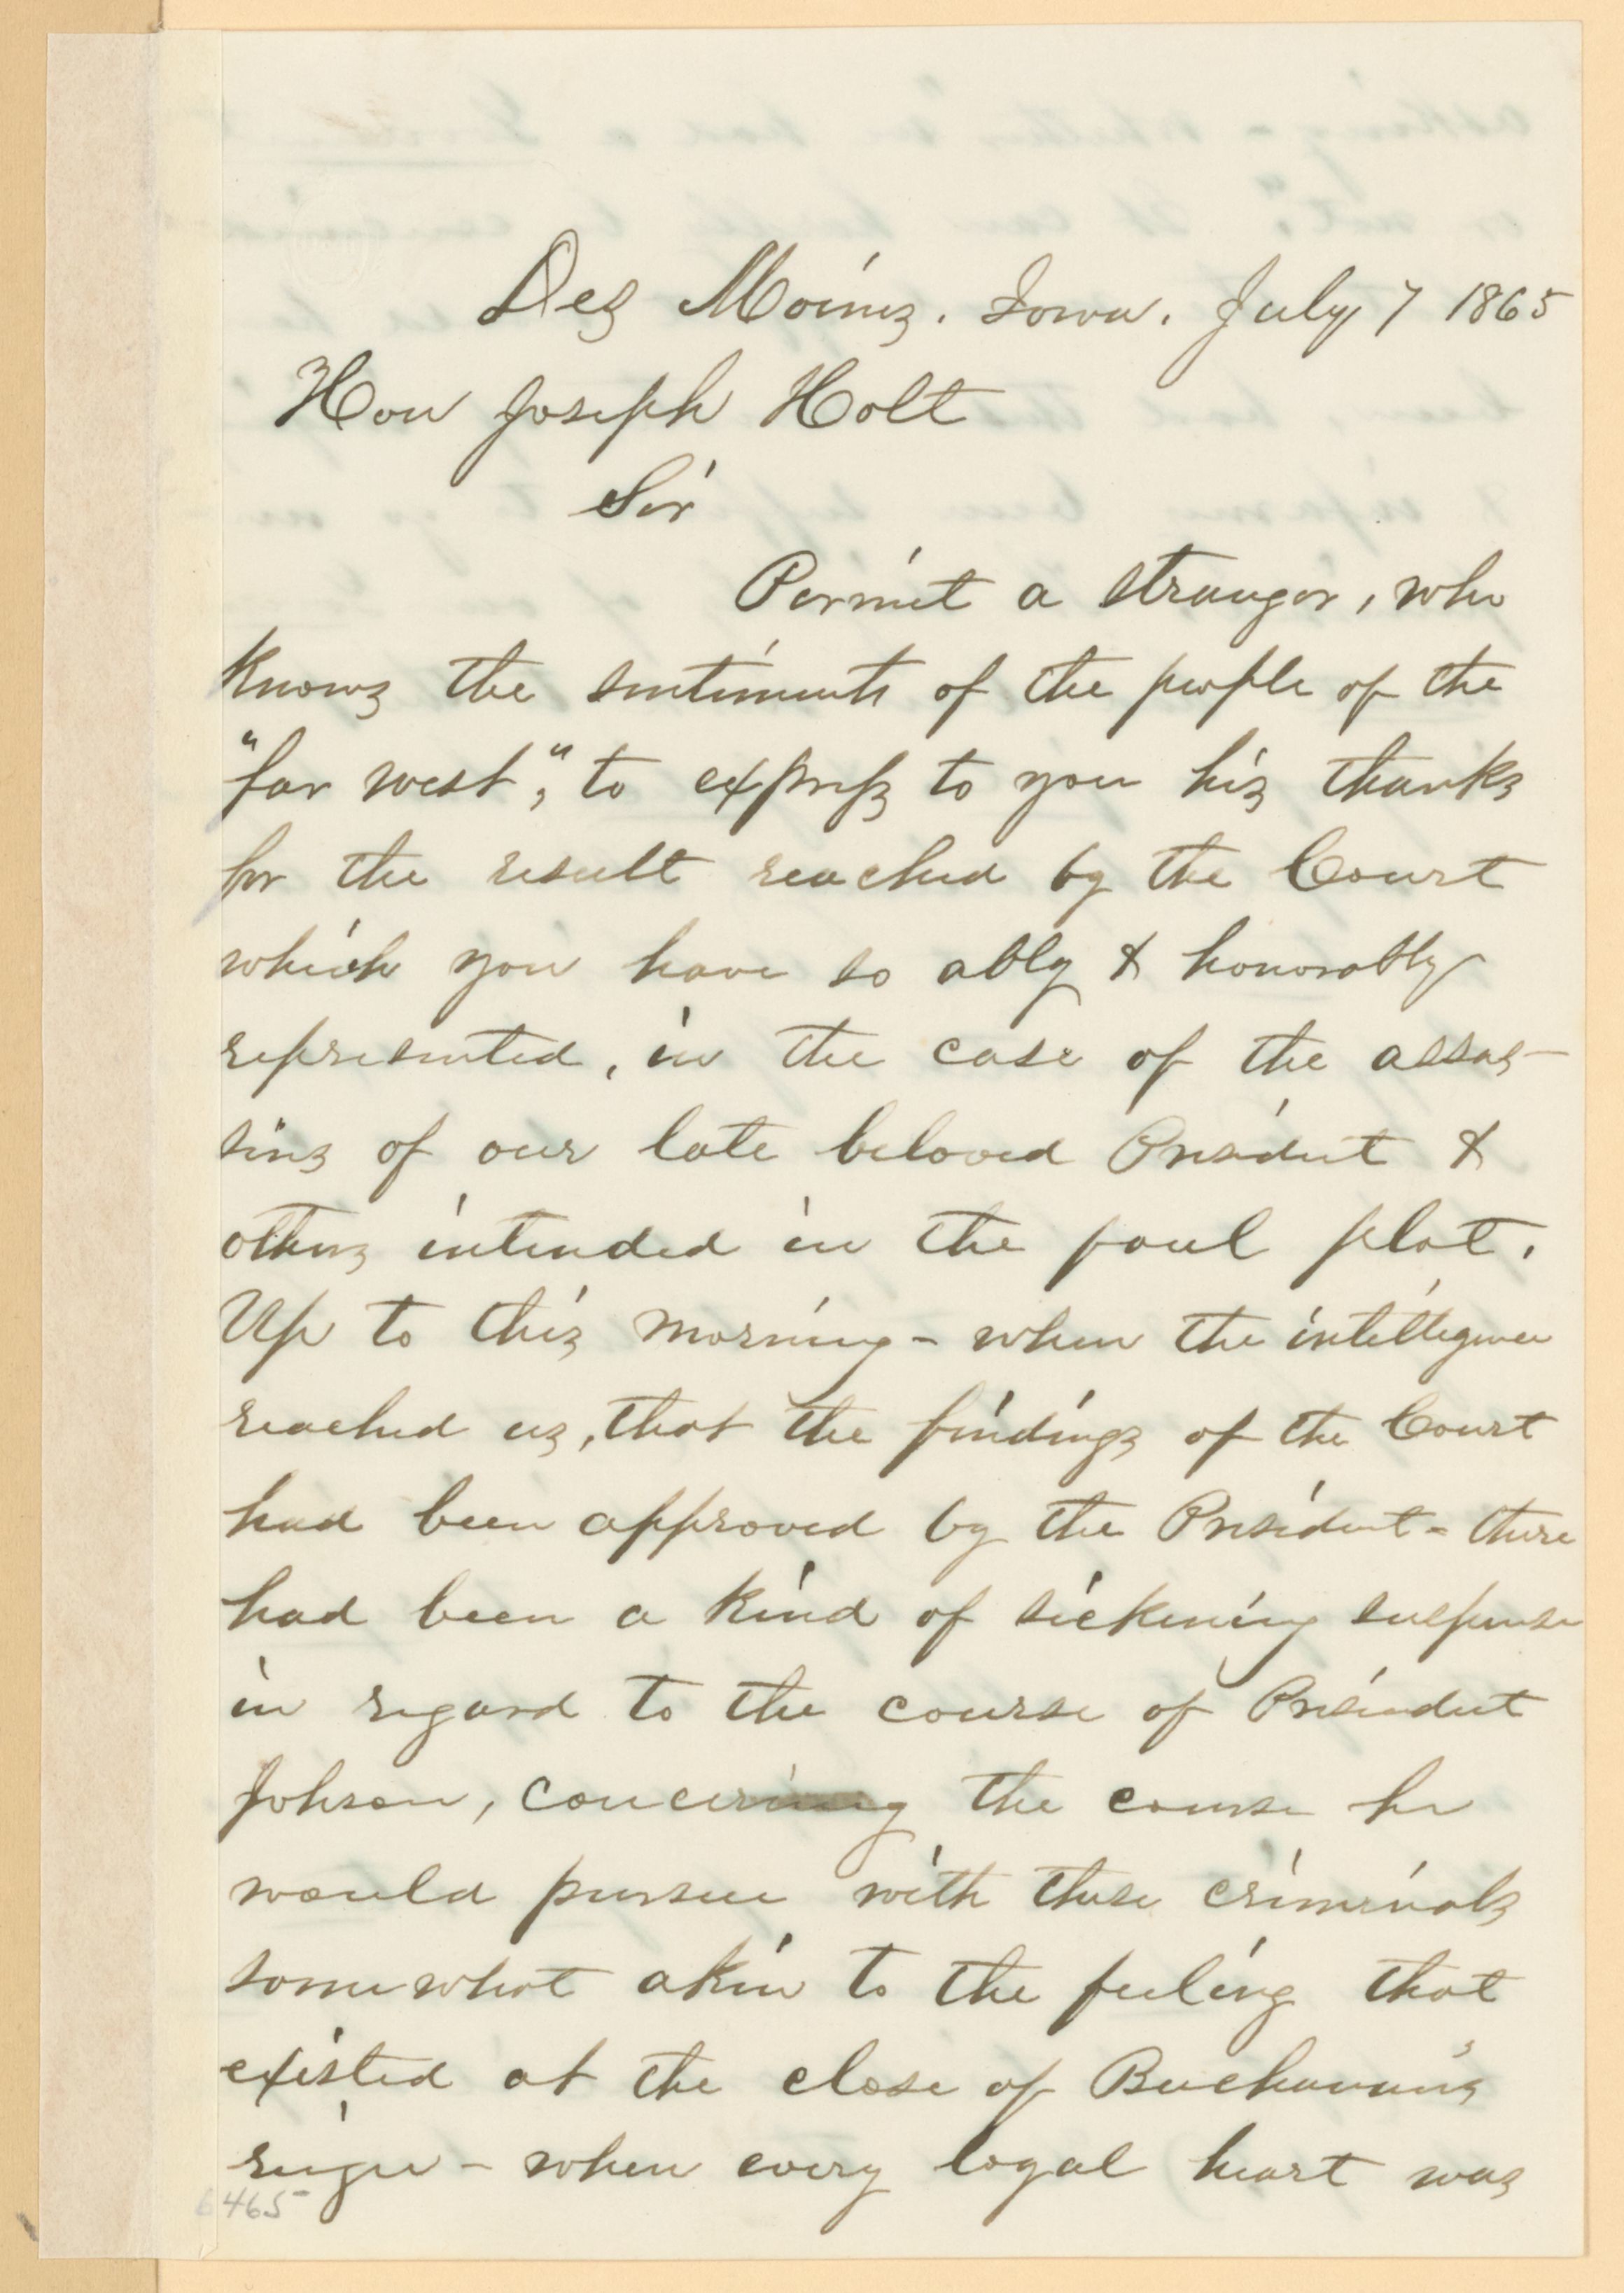 Des Moines. Iowa. July 7 1865
Hon Joseph Holt
Sir
Permit a stranger, who
knows the sentiments of the people of the
"far west", to express to you his thanks
for the result reached by the Court
which you have so ably & honorably
represented, in the case of the assas-
sins of our late beloved President &
others intended in the foul plot.
Up to this morning - when the intelligence
reached us, that the findings of the Court
had been approved by the President - there
had been a kind of sickening suspense
in regard to the course of President
Johnson, concerning the course he
would pursue with these criminals
somewhat akin to the feeling that
existed at the close of Buchanan's
reign - when every loyal heart was
6465